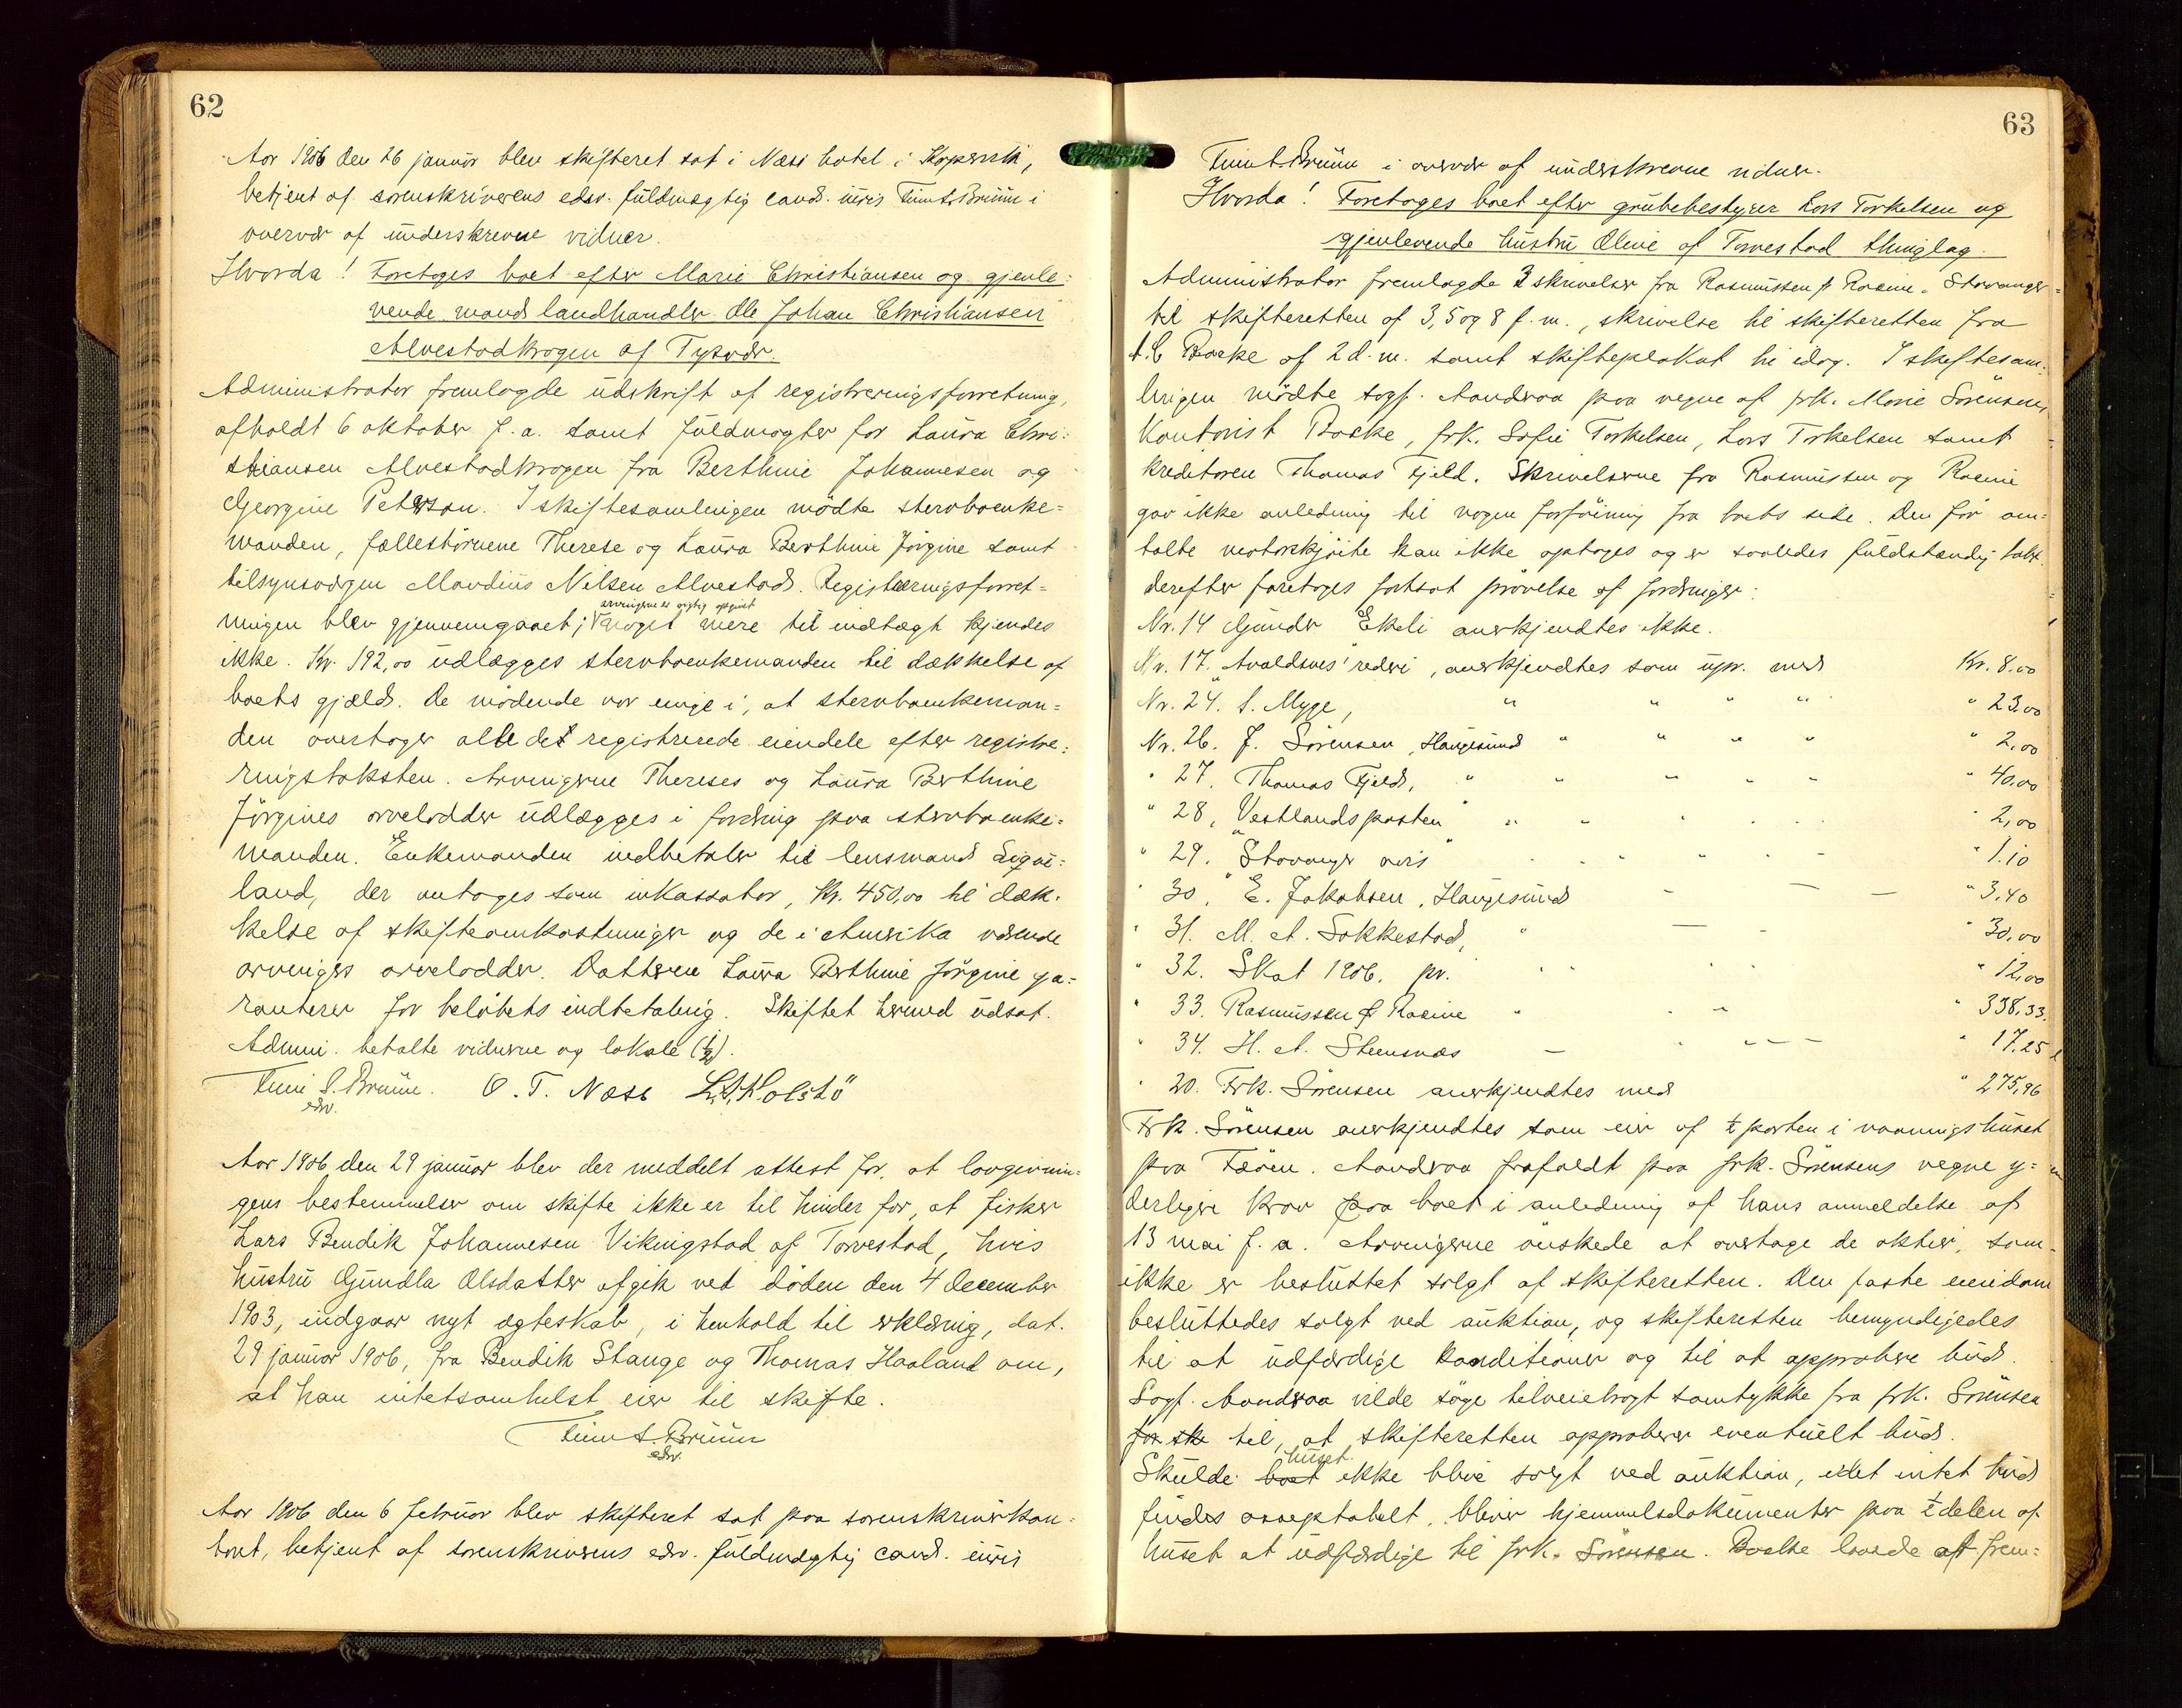 62
Aar 1906 den 26 januar blev skifteret sat i Næss hotel i Kopervik,
betjent af sorenskriverens edsv. fuldmægtig cand. iuris Finn S. Bruun i
overvær af underskrevne vidner.
Hvorda! Foretoges boet efter Marie Christiansen og gjenle=
vende mand landhandler Ole Johan Christiansen
Alvestadkrogen af Tysvær.
Administrator fremlagde udskrift af registreringsforretning,
afholdt 6 oktober f. a. samt fuldmagter for Laura Chri=
stiansen Alvestadkrogen fra Berthine Johannesen og
Georgine Peterson. I skiftesamlingen mödte stervboenke=
manden, fællesbörnene Therese og Laura Berthine Jörgine samt
tilsynsværgen Mandius Nilsen Alvestad. Registreringsforret=
arvingerne er rigtig opgivet
ningen blev gjennemgaaet; noget mere til indtægt kjendes
ikke. Kr. 192,00 udlægges stervboenkemanden til dækkelse af
boets gjæld. De mödende var enige i, at stervboenkeman=
den overtager alle det registrerede eiendele efter registre=
ringstaksten. Arvingerne Thereses og Laura Berthine
Jörgines arvelodder udlægges i fordring paa stervboenke=
manden. Enkemanden indbetaler til lensmand Liga=
land, der antages som inkassator, Kr. 450,00 til dæk=
kelse af skifteomkostninger og de i Amerika værende
arvingers arvelodder. Datteren Laura Berthine Jörgine ga=
ranterer for belöbets indbetaling. Skiftet hermed udsat.
Admini. betalte vidnerne og lokale (1/2).
Finn S. Bruun. O. T. Næss L. A. Holstö
edsv.
Aar 1906 den 29 januar blev der meddelt attest for, at lovgivnin=
gens bestemmelser om skifte ikke er til hinder for, at fisker
Lars Bendik Johannesen Vikingstad af Torvestad, hvis
hustru Gundla Olsdatter afgik ved döden den 4 december
1903, indgaar nyt ægteskab, i henhold til erklæring, dat.
29 januar 1906, fra Bendik Stange og Thomas Haaland om,
at han intetsomhelst eier til skifte.
Finn S. Bruun
edsv.
Aar 1906 den 6 februar blev skifteret sat paa sorenskriverkon=
toret, betjent af sorenskriverens edsv. fuldmægtig cand. iuris
63
Finn S. Bruun i overvær af underskrevne vidner.
Hvorda! Foretoges boet efter grubebestyrer Lars Torkelsen og
gjenlevende hustru Oline af Torvestad thinglag.
Administrator fremlagde 3 skrivelser fra Rasmussen & Racine, Stavanger
til skifteretten af 3, 5 og 8 f. m., skrivelse til skifteretten fra
Backe af 2 d. m. samt skifteplakat til idag. I skiftesam=
lingen mödte sagf. Aandraa paa vegne af frk. Marie Sörensen,
Kontorist Backe, frk. Sofie Torkelsen, Lars Torkelsen samt
kreditoren Thomas Fjeld. Skrivelserne fra Rasmussen og Racine
gav ikke anledning til nogen forföining fra boets side. Den för om=
talte motorskjöite kan ikke optages og er saaledes fuldstændig tabt.
Derefter foretoges fortsat prövelse af fordringer:
Nr. 14 Gunder Ekeli anerkjendtes ikke.
Nr. 17. "Avaldsnes" rederi, anerkjendtes som upr. med Kr. 8.00
Nr. 24. S. Myge, " " " " " 23,00
Nr. 26. J. Sörensen, Haugesund " " " " " 2,00
" 27. Thomas Fjeld, " " " " " " 40,00
" 28, "Vestlandsposten" " " " " " 2,00
" 29. "Stavanger avis" " " " " " 1.10
" 30. E. Jakobsen, Haugesund — — — " 3,40
" 31. M. A. Sakkestad, " — - " 30,00
" 32. Skat 1906. pr. " " " " 12,00
" 33. Rasmussen & Racine " " " " 338,33.
" 34. H. A. Steensnæs — " " — — " 17,25
" 20. Frk. Sörensen anerkjendtes med " 275,96
Frk. Sörensen anerkjendtes som eier af 1/2 parten i vaaningshuset
paa Fæöen. Aandraa frafaldt paa frk. Sörensens vegne y=
derligere krav paa boet i anledning af hans anmeldelse af
13 mai f. a. Arvingerne önskede at overtage de aktier, som
ikke er besluttet solgt af skifteretten. Den faste eiendom
besluttedes solgt ved auktion, og skifteretten bemyndigedes
til at udfærdige konditioner og til at approbere bud.
Sagf. Aandraa vilde söge tilveiebragt samtykke fra frk. Sörensen
for ske til, at skifteretten approberer eventuelt bud.
huset
Skulde boet ikke blive solgt ved auktion, idet intet bud
findes acceptabelt, bliver hjemmelsdokumenter paa 1/2 delen af
huset at udfærdige til frk. Sörensen. Backe lovede at frem=